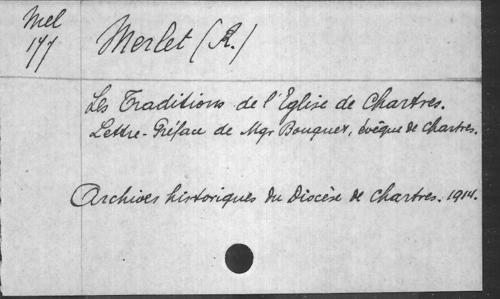 Mel
177
Merlet (R.)
Les Traditions de l'Eglise de Chartres.
Lettre-Préface de Mgr Bouquet, évêque de Chartres.
Archives historiques du Diocèse de Chartres. 1914.